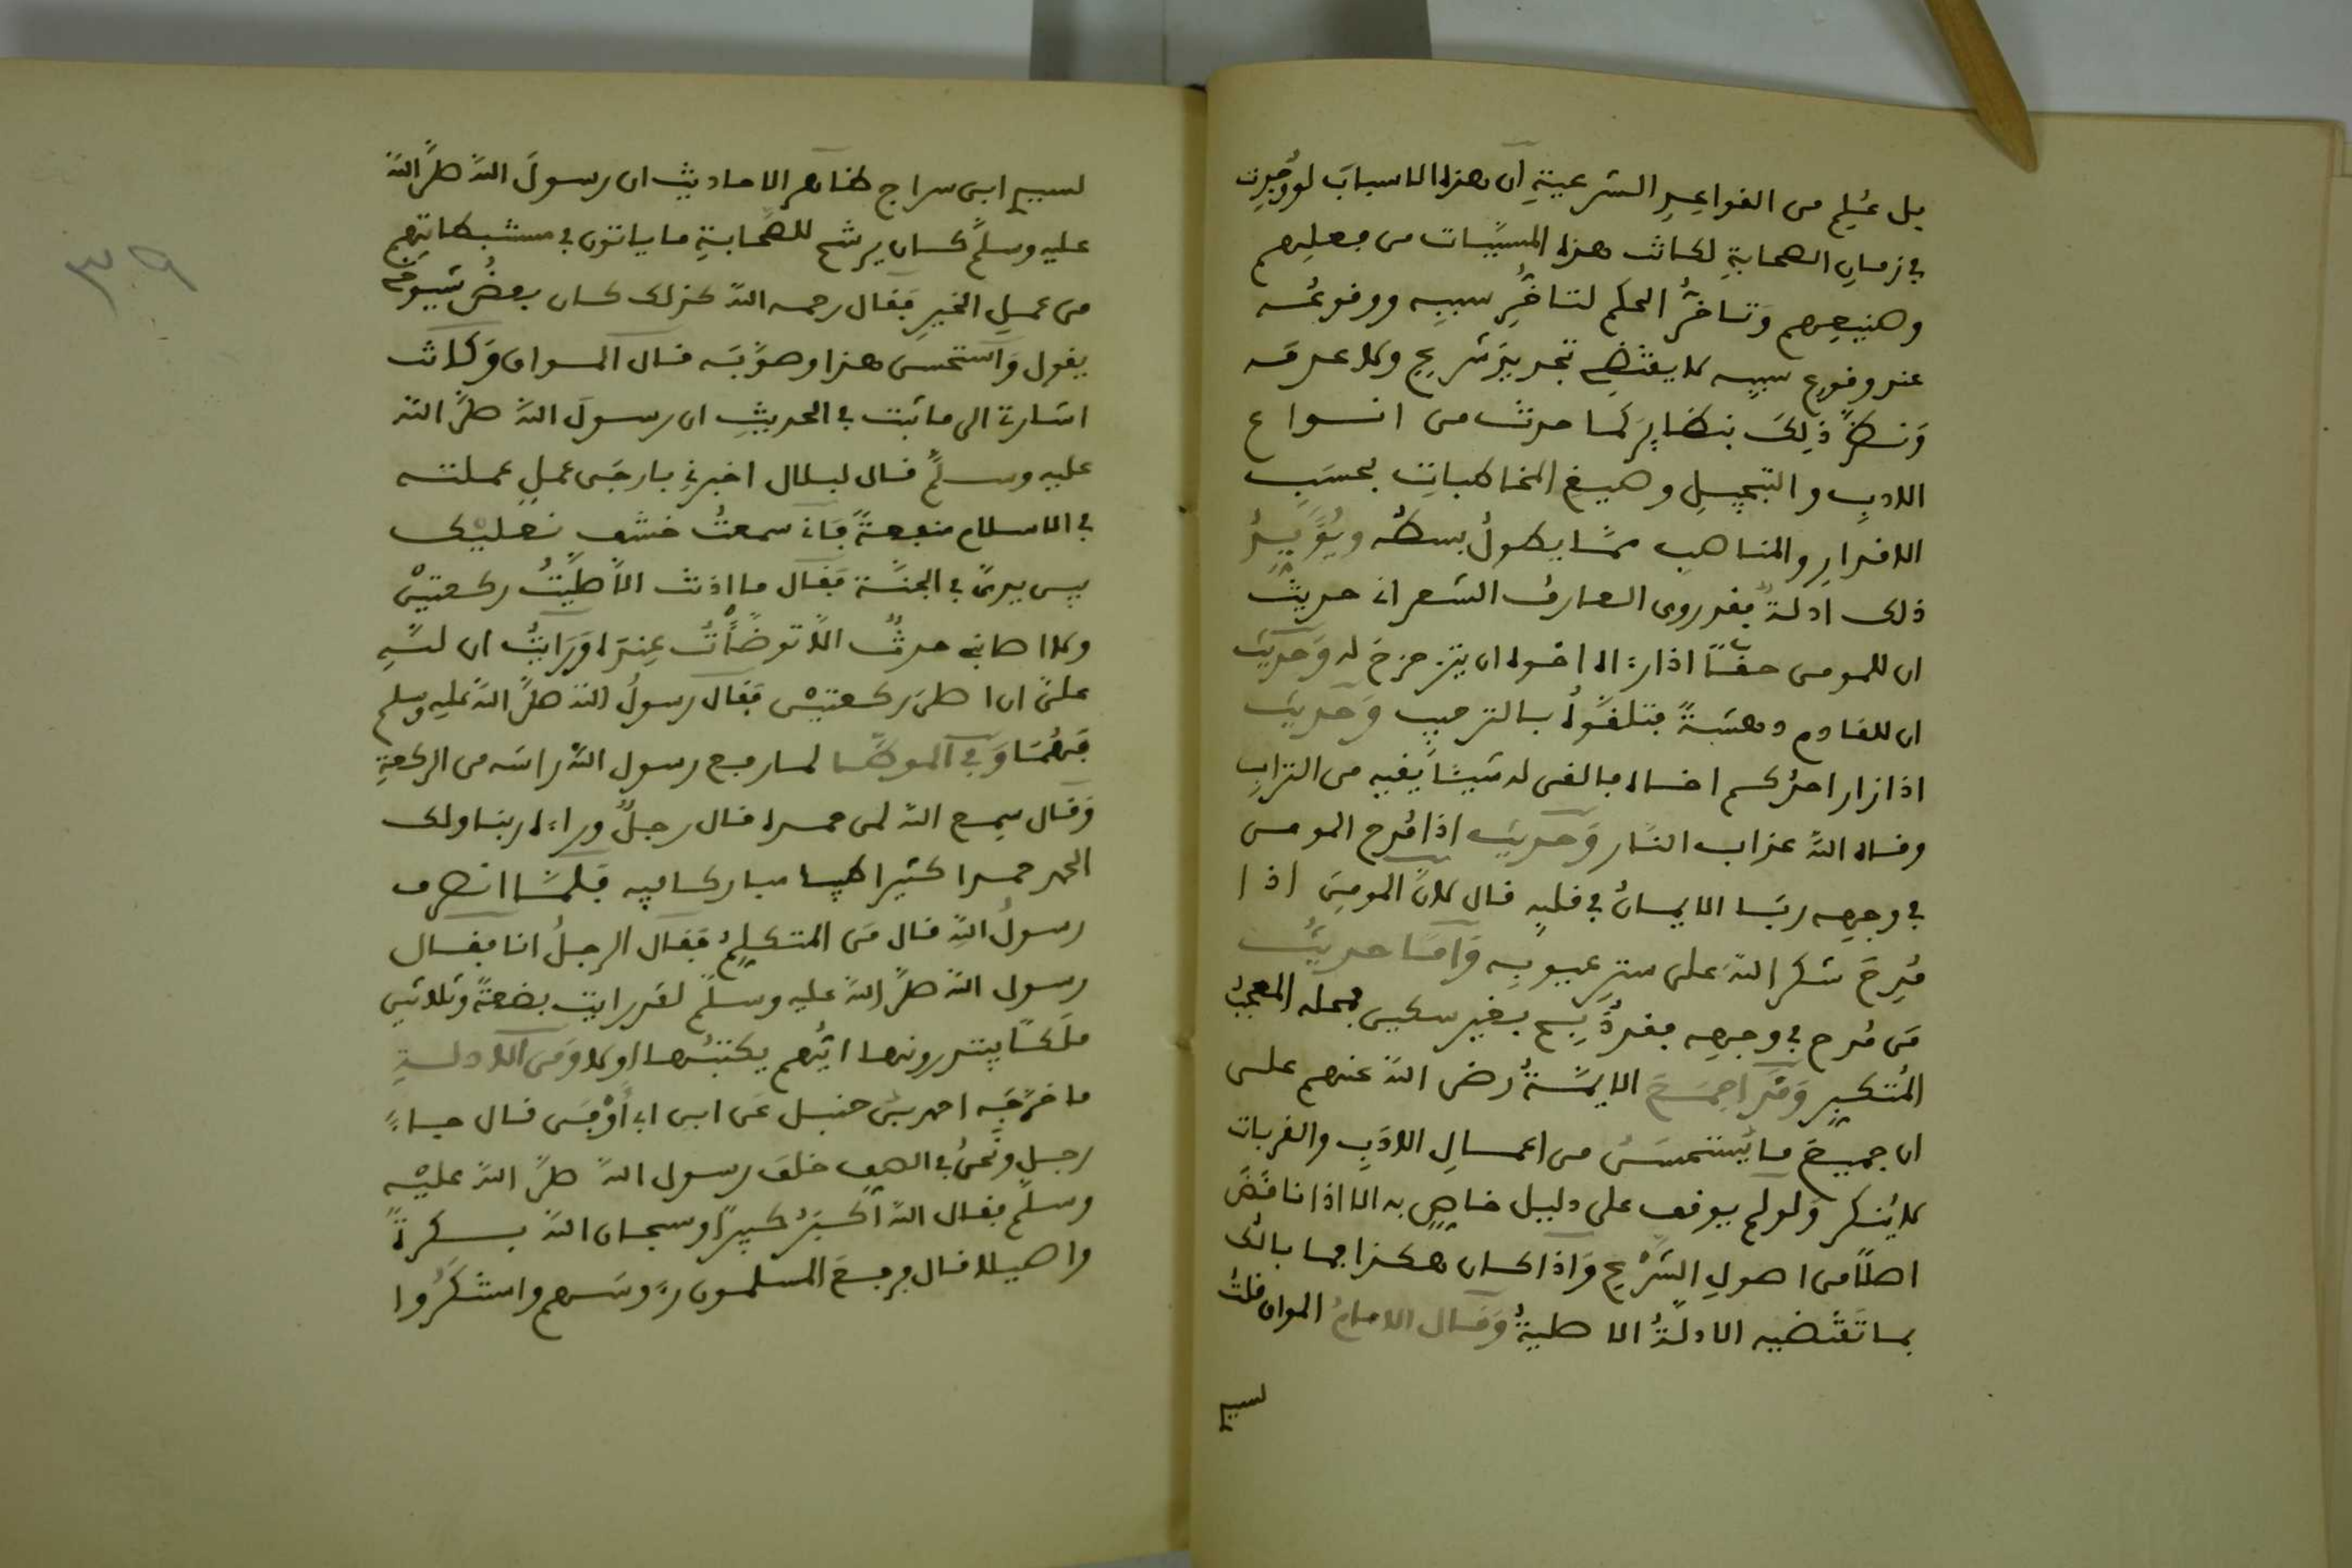 بل عُلِم من القواعِدِ الشرعيةِ ان هذه الاسبابَ لو وُجِدت
في زمانِ الصحابةِ لكانت هذه المسبَّبات من فعلِهم
وصنيعِهم وَتاخُّرُ الحكم لتاخُّرِ سببِه ووقوعُه
عند وقوع سببِه لا يقتضِي تجديدَ شرع ولا عدمَه
وَنظرُ ذلِكَ بنظايِرَ كما حدث من انواع
الادبِ والتبجيلِ وصيغ المخاطباتِ بحسَبِ
الاقدارِ والمناصب ممّا يطولُ بسطُه ويُوَّيِدُ
ذلك ادلةٌ فقد روى العارف الشعراني حديثَ
ان للمومن حقًّا اذا رءاه اخوه ان يتزحزحَ له وَحديثَ
ان للقادم دهشةً فتلقَّوهُ بالترحيب وَحديثَ
اذا زار احدُكم اخاه فالقى له شيئًا يقيه من الترابِ
وقاه اللهُ عذاب النار وَحديثَ اذا مُدح المومن
في وجهِه ربَا الايمانُ في قلبِه قال لانَّ المومِنَ اذا
مُدِحَ شكر اللهَ على سترِ عيوبِه وَامّا حديثُ
مَن مُدح في وجهِه فقد ذُبِح بغير سكين فمحله المعجبُ
المُتكبِر وَقد اجمَعَ الايمّةُ رضى اللهُ عنهم على
ان جميعَ ما يُستحسَنُ من اعمالِ الادَبِ والقربات
لا يُنكر وَلو لم يوقف على دليل خاصٍ به الا اذا ناقضَ
اصلًا من اصولِ الشرْعِ وَاذا كان هكذا فما بالُك
بما تَقتضيه الادلةُ الاصليةُ وَقال الامامُ المواق قلتُ
لسيدِ
لسيدِ ابن سراج ظاهر الاحاديث ان رسولَ اللهِ صلَّى اللهُ
عليه وسلَّم كان يرشح للصَّحابةِ ما ياتون في مستنبطاتِهم
من عملِ الخيرِ فَقال رحمه اللهُ كذلك كان بعضُ شيوخِي
يقول وَاستحسن هذا وصوّبَه قال المواق وَكانت
اشارة الى ما ثبت في الحديثِ ان رسولَ اللهِ صلَّى اللهُ
عليه وسلَّم قال لبلال اخبرنِي بارجَى عملٍ عملته
في الاسلام منفعةً فَاني سمعتُ خشف نعليْك
بين يديَّ في الجنَّة فَقال ما اذنت الَّا صليَّتُ ركعتيْن
ولا اصابني حدثٌ الَّا توضَّأْتُ عِندَه وَرَايتُ ان للهِ
علىَّ ان اصلى ركعتيْن فَقال رسولُ اللهِ صلَّى اللهُ عليه وسلم
فَبِهُمَا وَفي الموطّا لما رفع رسول اللهِ راسَه من الركعةِ
وَقال سمع اللهُ لمن حمده قال رجلٌ وراءه ربنا ولك
الحمد حمدا كثيرا طيبا مباركا فيه فَلمَّا انصرف
رسولُ اللهِ قال مَن المتكلمُ فَقال الرجلُ انا فقال
رسول اللهِ صلَّى اللهُ عليه وسلَّم لقد رايت بضعةً وثلاثين
ملكًا يبتدرونها ايُّهم يكتبُها اولا وَمن الادلةِ
ما خرَّجَه احمد بن حنبل عَن ابن ابي أَوْفَى قال جاءَ
رجل ونحنُ في الصف خلف رسول اللهِ صلَّى اللهُ عليْه
وسلَّم فقال اللهُ اكبَرُ كبيرًا وسبحان اللهِ بكرةً
واصيلا قال فرفعَ المسلمون رءُوسَهم واستنكَرُوا
٣٩